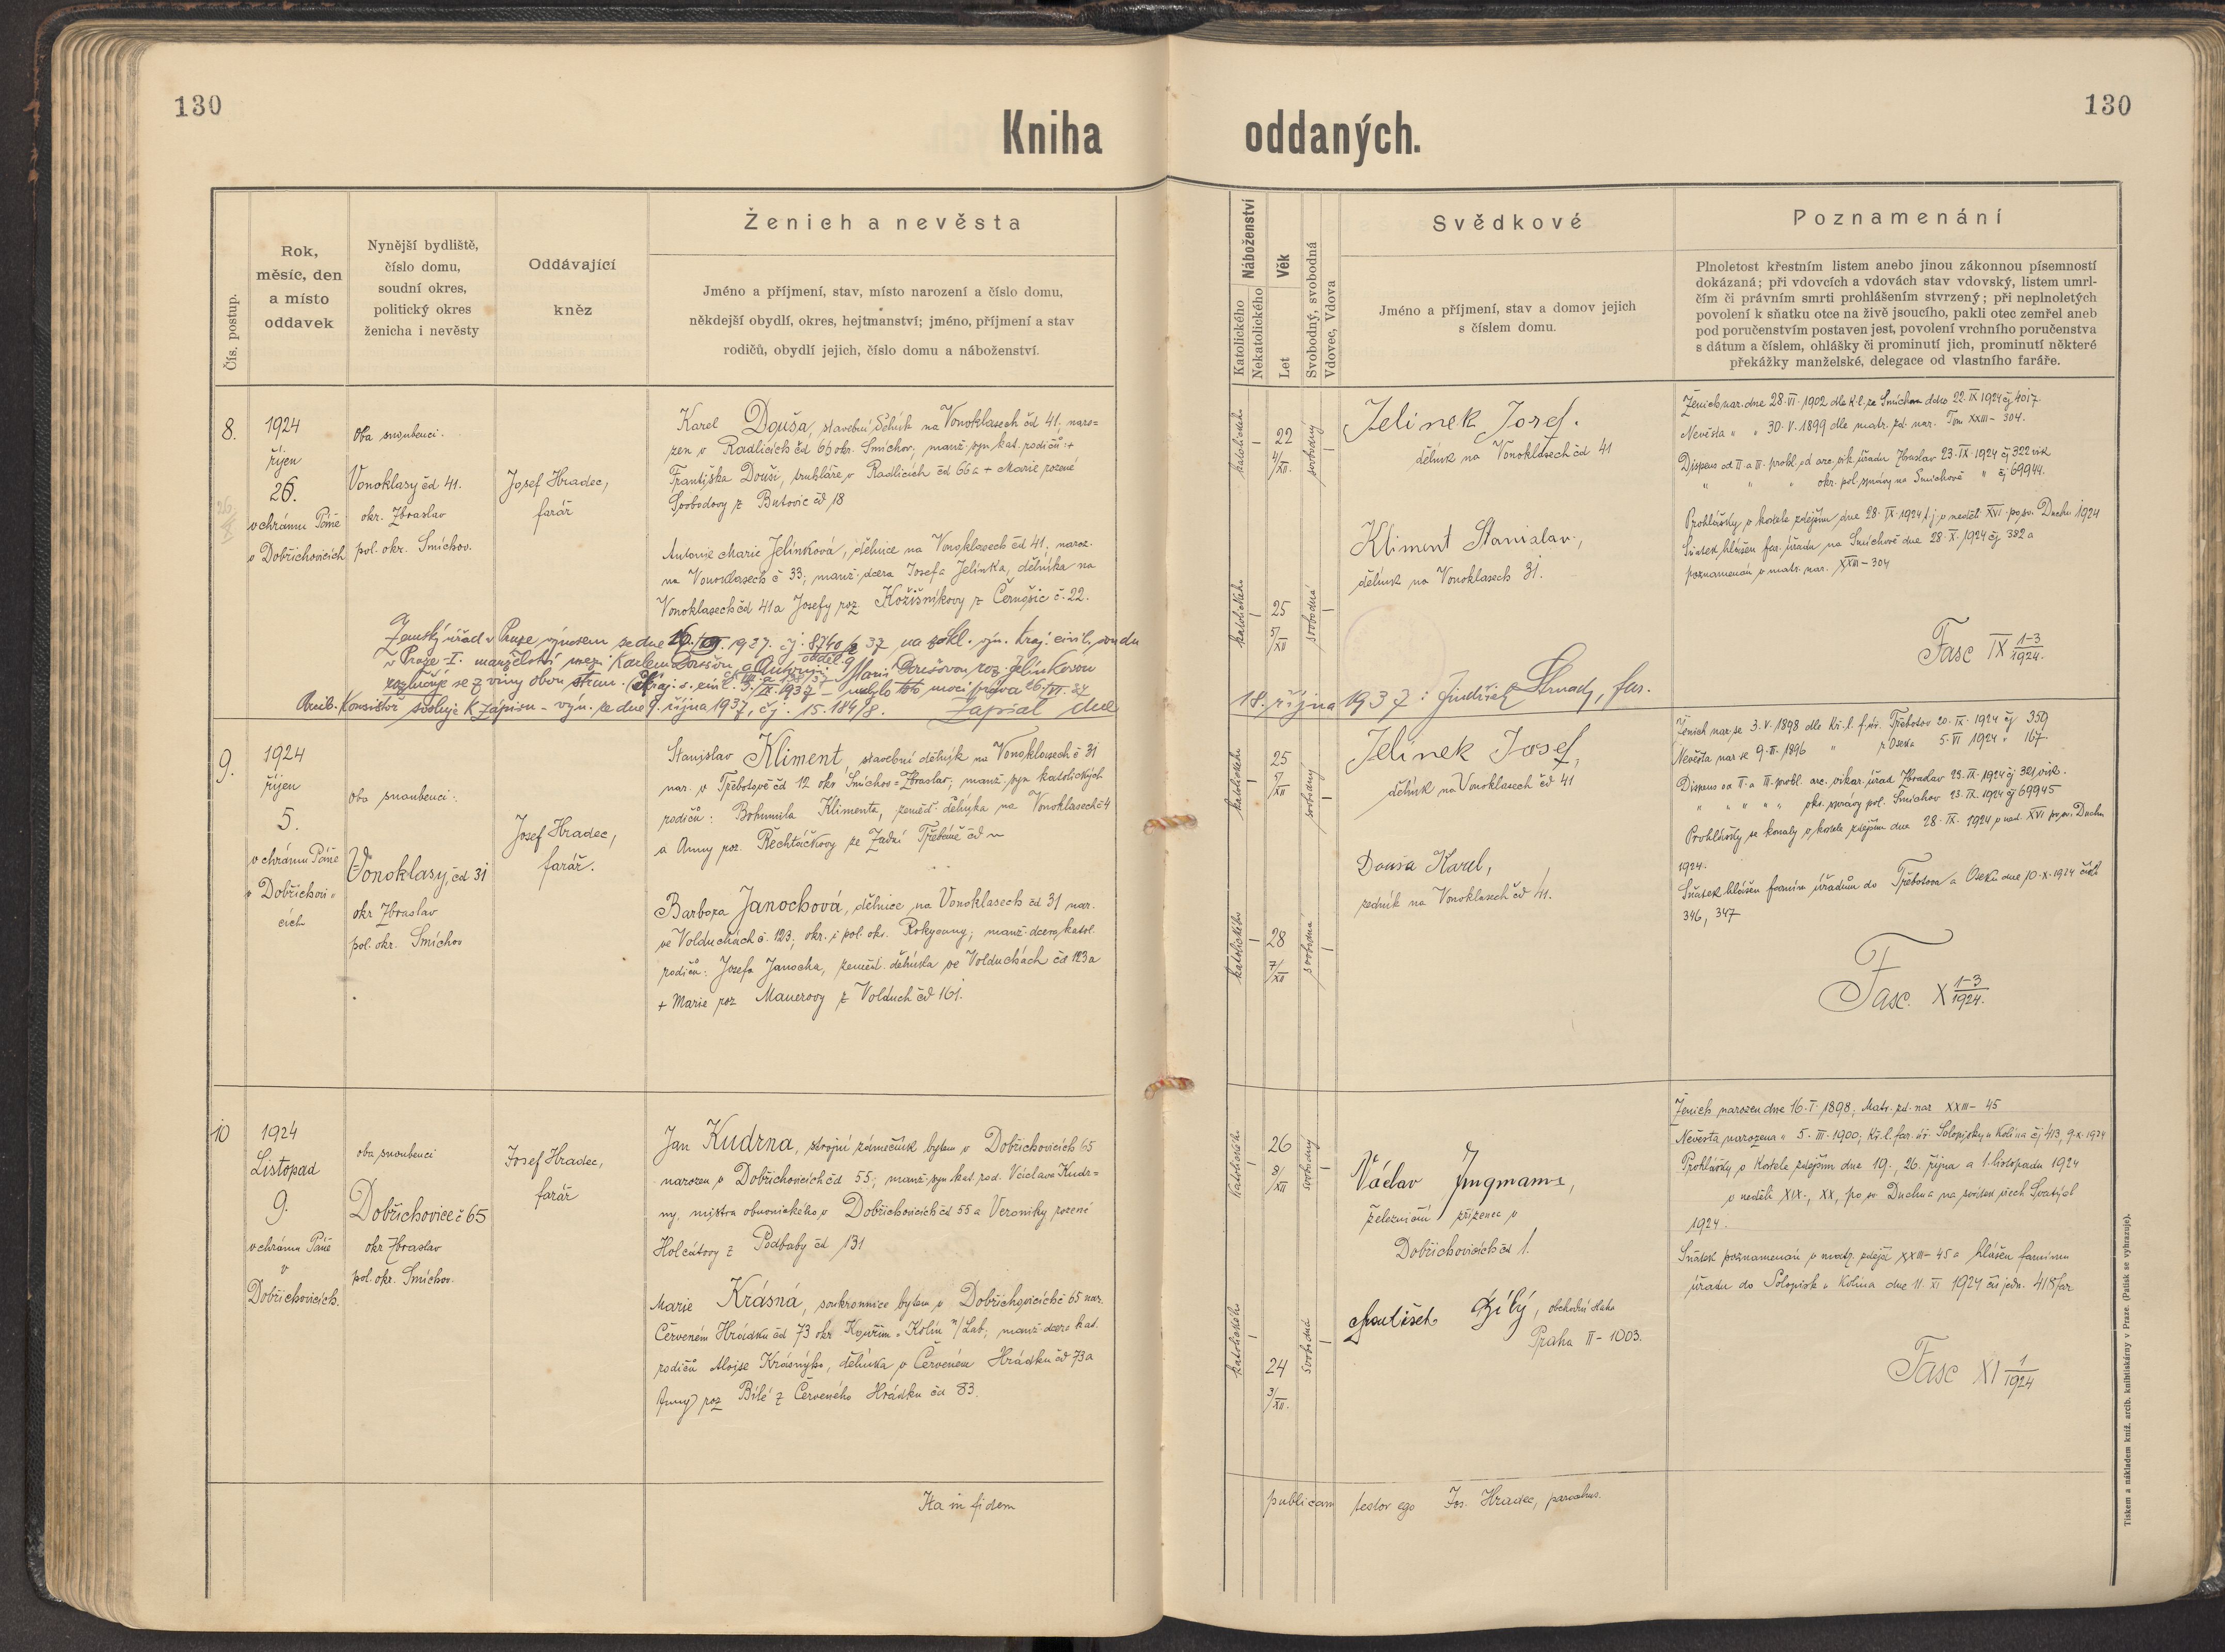 130
130
Kniha oddaných.
Čís. postup.
Rok,
měsíc, den
a místo
oddavek
Nynější bydliště,
číslo domu,
soudní okres,
politický okres
ženicha i nevěsty
Oddávající
kněz
Ženich a nevěsta
Jméno a příjmení, stav, místo narození a číslo domu,
někdejší obydlí, okres, hejtmanství; jméno, příjmení a stav
rodičů, obydlí jejich, číslo domu a náboženství.
Náboženství
Katolického
Nekatolického
Věk
Let
Svobodný, svobodná
Vdovec, Vdova
Svědkové
Jméno a příjmení, stav a domov jejich
s číslem domu.
Poznamenání
Plnoletost křestním listem anebo jinou zákonnou písemností
dokázaná; při vdovcích a vdovách stav vdovský, listem umrl-
čím či právním smrti prohlášením stvrzený; při neplnoletých
povolení k sňatku otce na živě jsoucího, pakli otec zemřel aneb
pod poručenstvím postaven jest, povolení vrchního poručenstva
s dátum a číslem, ohlášky či prominutí jich, prominutí některé
překážky manželské, delegace od vlastního faráře.
8.
1924
říjen
v chrámu Páně
v Dobřichovicích
Oba snoubenci.
Vonoklasy čd 41.
okr. Zbraslav
pol. okr. Smíchov.
Josef Hradec,
farář
Karel Douša, stavební dělník na Vonoklasech čd 41, naro=
zen v Radlicích čd 66 okr. Smíchov; manž. syn kat. rodičů: +
Františka Douši, truhláře v Radlicích čd 66 a + Marie rozené
Svobodovy z Butovic čd 18
Antonie Marie Jelínková, dělnice na Vonoklasech čd 41, naroz.
na Vonoklasech č 33; manž. dcera Josefa Jelínka, dělníka na
Vonoklasech čd 41 a Josefy roz Kožišníkovy z Černošic č. 22.
Zemský úřad v Praze, výnosem ze dne 1937. čj. 8740 37 na zákl. výn. kraj. civil. soudu
v Praze I. manželství mezi Karlem Doušou a Antonií Marií Doušovou roz. Jelínkovou
rozlučuje se z viny obou stran.
Arcib. Konsistoř svoluje k zápisu - výn. ze dne 9. října 1937, čj. 15.184/8. Zapsal dne
18. října 1937: Jindřich Strnad, far.
katolického
22
4/XII.
svobodný
katolického
25
5/XII
svobodná
Jelínek Josef.
dělník na Vonoklasech čd 41
Kliment Stanislav,
dělník na Vonoklasech 31.
Ženich nar. dne 28. VI. 1902 dle k. l. ze Smíchova ddto 22. IX 1924 čj 4017
Nevěsta " " 30. V. 1899 dle matr. zd. nar. Tom XXIII - 304.
Dispens od II a III. prohl. od arc. vik. úřadu Zbraslav 23. IX. 1924 čj 322 vik
" " " okr. pol. správy na Smíchově " čj 69944.
Prohlášky v kostele zdejším dne 28. IX. 1924 t. j. v neděli XVI. po sv. Duchu 1924
Sňatek hlášen far. úřadu na Smíchově dne 28. X. 1924 čj 382 a
poznamenán v matr. nar. XXIII - 304
Fasc IX 1-3/1924.
9.
1924
říjen
5.
v chrámu Páně
v Dobřichovi=
cích
oba snoubenci:
Vonoklasy, čd 31
okr Zbraslav
pol. okr. Smíchov
Josef Hradec,
farář.
Stanislav Kliment, stavební dělník na Vonoklasech č 31
nar. v Třebotově čd 12 okr Smíchov=Zbraslav; manž. syn katolických
rodičů: Bohumila Klimenta, zeměd. dělníka na Vonoklasech č 4
a Anny roz. Řechtáčkovy ze Zadní Třebáně čd
Barbora Janochová, dělnice na Vonoklasech čd 31 nar.
ve Volduchách č. 123; okr. i pol. okr. Rokycany; manž. dcera katol.
rodičů: Josefa Janocha, zeměd. dělníka ve Volduchách čd 123 a
+ Marie roz Mauerovy z Volduch čd 161.
katolického
25
5/XII
svobodný
katolického
28
7/XII
svobodná
Jelínek Josef,
dělník na Vonoklasech čd 41
Douša Karel,
zedník na Vonoklasech čd 41.
Ženich nar. se 3. V. 1898 dle kř. l. f. úř. Třebotov 20. IX. 1924 čj 359
Nevěsta nar se 9. II. 1896 " z Oseka 5. VI 1924 " 167
Dispens od II. a III. prohl. arc. vikar. úřad Zbraslav 23. IX. 1924 čj 321 vik.
" " " " " okr. správy pol. Smíchov 23. IX. 1924 čj 69945
Prohlášky se konaly v kostele zdejším dne 28. IX. 1924 v ned. XVI po sv. Duchu
1924.
Sňatek hlášen farním úřadům do Třebotova a Oseku dne 10. X. 1924 čís
346, 347
Fasc. X 1-3/1924.
10
1924
Listopad
9.
v chrámu Páně
v
Dobřichovicích.
oba snoubenci
Dobřichovice č 65
okr Zbraslav
pol. okr. Smíchov.
Josef Hradec,
farář
Jan Kudrna, strojní zámečník bytem v Dobřichovicích 65
narozen v Dobřichovicích čd 55; manž. syn kat. rod. Václava Kudr=
ny, mistra obuvnického v Dobřichovicích čd 55 a Veroniky rozené
Holcátovy z Podbaby čd 131
Marie Krásná, soukromnice bytem v Dobřichovicích č 65 nar.
Červeném Hrádku čd 73 okr Kouřim - Kolín n/Lab; manž. dcera kat.
rodičů Aloise Krásného, dělníka v Červeném Hrádku čd 73 a
Anny roz Bílé z Červeného Hrádku čd 83.
katolického
26
svobodný
katolického
24
3/XII.
svobodná
Václav Jungmann,
železniční zřízenec v
Dobřichovicích čd 1.
Bílý, obchodní sluha
Praha II - 1003.
Ženich narozen dne 16. I. 1898, Matr. zd. nar XXIII - 45
Nevěsta narozena " 5. III. 1900; Kř. l. far. úř. Solopisky u Kolína čj 413, 9. X. 1924
Prohlášky v kostele zdejším dne 19., 26. října a 1. listopadu 1924
v neděli XIX., XX, po sv. Duchu a na svátek všech Svatých
1924.
Sňatek poznamenán v matr. zdejší XXIII - 45 a hlášen farnímu
úřadu do Solopisk u Kolína dne 11. XI 1924 čís jedn. 418/far
Fasc XI 1/1924
Ita in fidem publicam testor ego Jos. Hradec, parochus.
Tiskem a nákladem kníž. arcib. knihtiskárny v Praze. (Patisk se vyhrazuje).